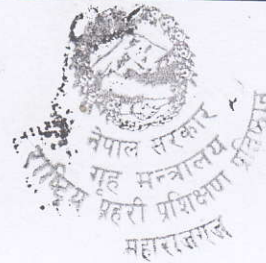 नेपाल सरकार
गृह मन्त्रालय
राष्ट्रिय प्रहरी प्रशिक्षण प्रतिष्ठान
महाराजगञ्ज